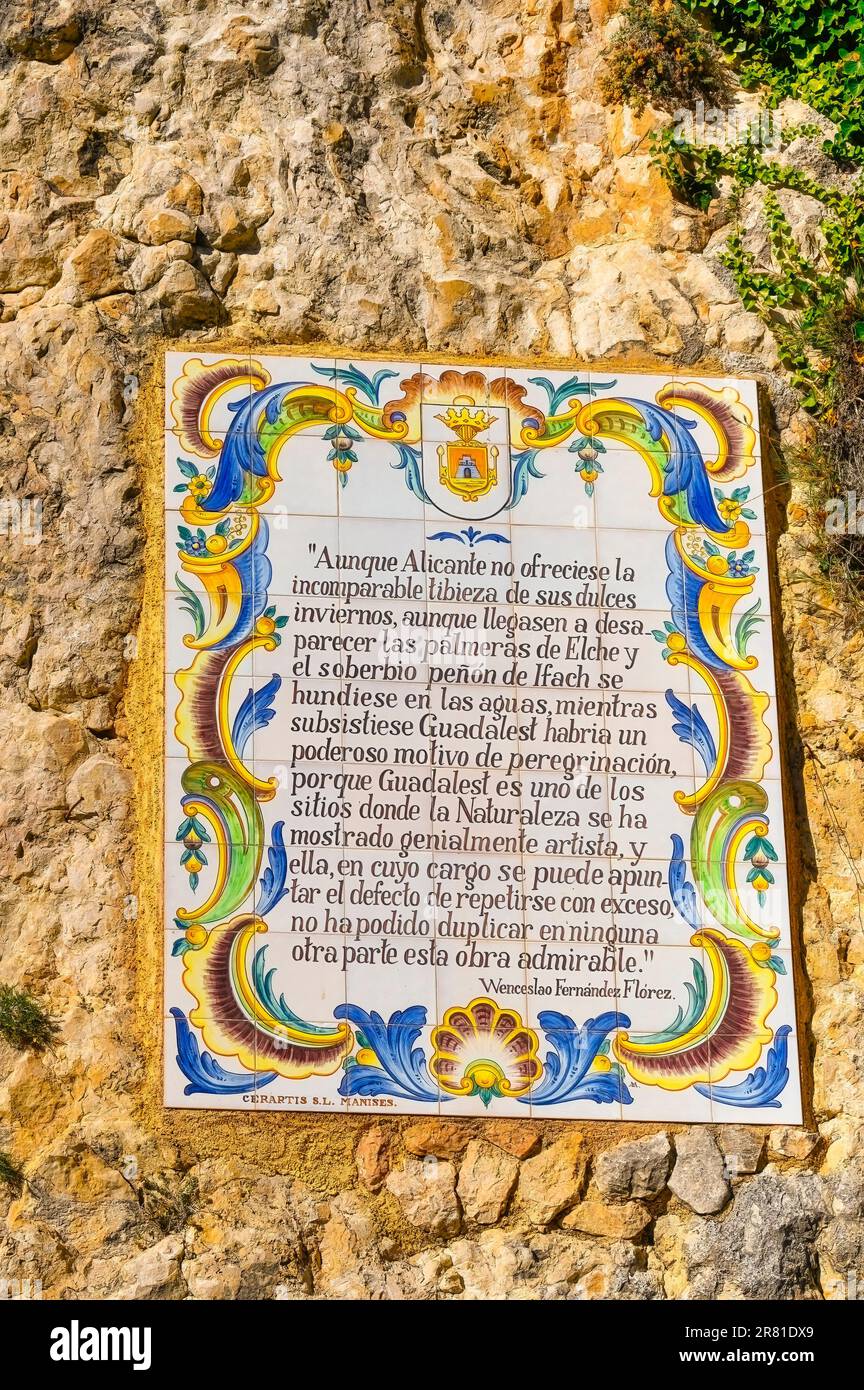 "Aunque Alicante no ofreciese la
incomparable tibieza de sus dulces
inviernos, aunque llegasen a desa-
parecer las palmeras de Elche y
el soberbio peñón de Ifach se
hundiese en las aguas, mientras
subsistiese Guadalest habria un
poderoso motivo de peregrinación,
porque Guadalest es uno de los
sitios donde la Naturaleza se ha
mostrado genialmente artista, y
ella, en cuyo cargo se puede apun-
tar el defecto de repetirse con exceso,
no ha podido duplicar en ninguna
otra parte esta obra admirable."
Wenceslao Fernández Flórez.
CERARTIS S.L. MANISES.
alamy
Image ID: 2R81DX9
www.alamy.com